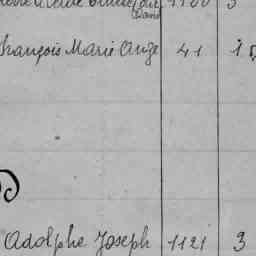 1100 3
David
François Marie Ange 41 15
Adolphe Joseph 1121 3